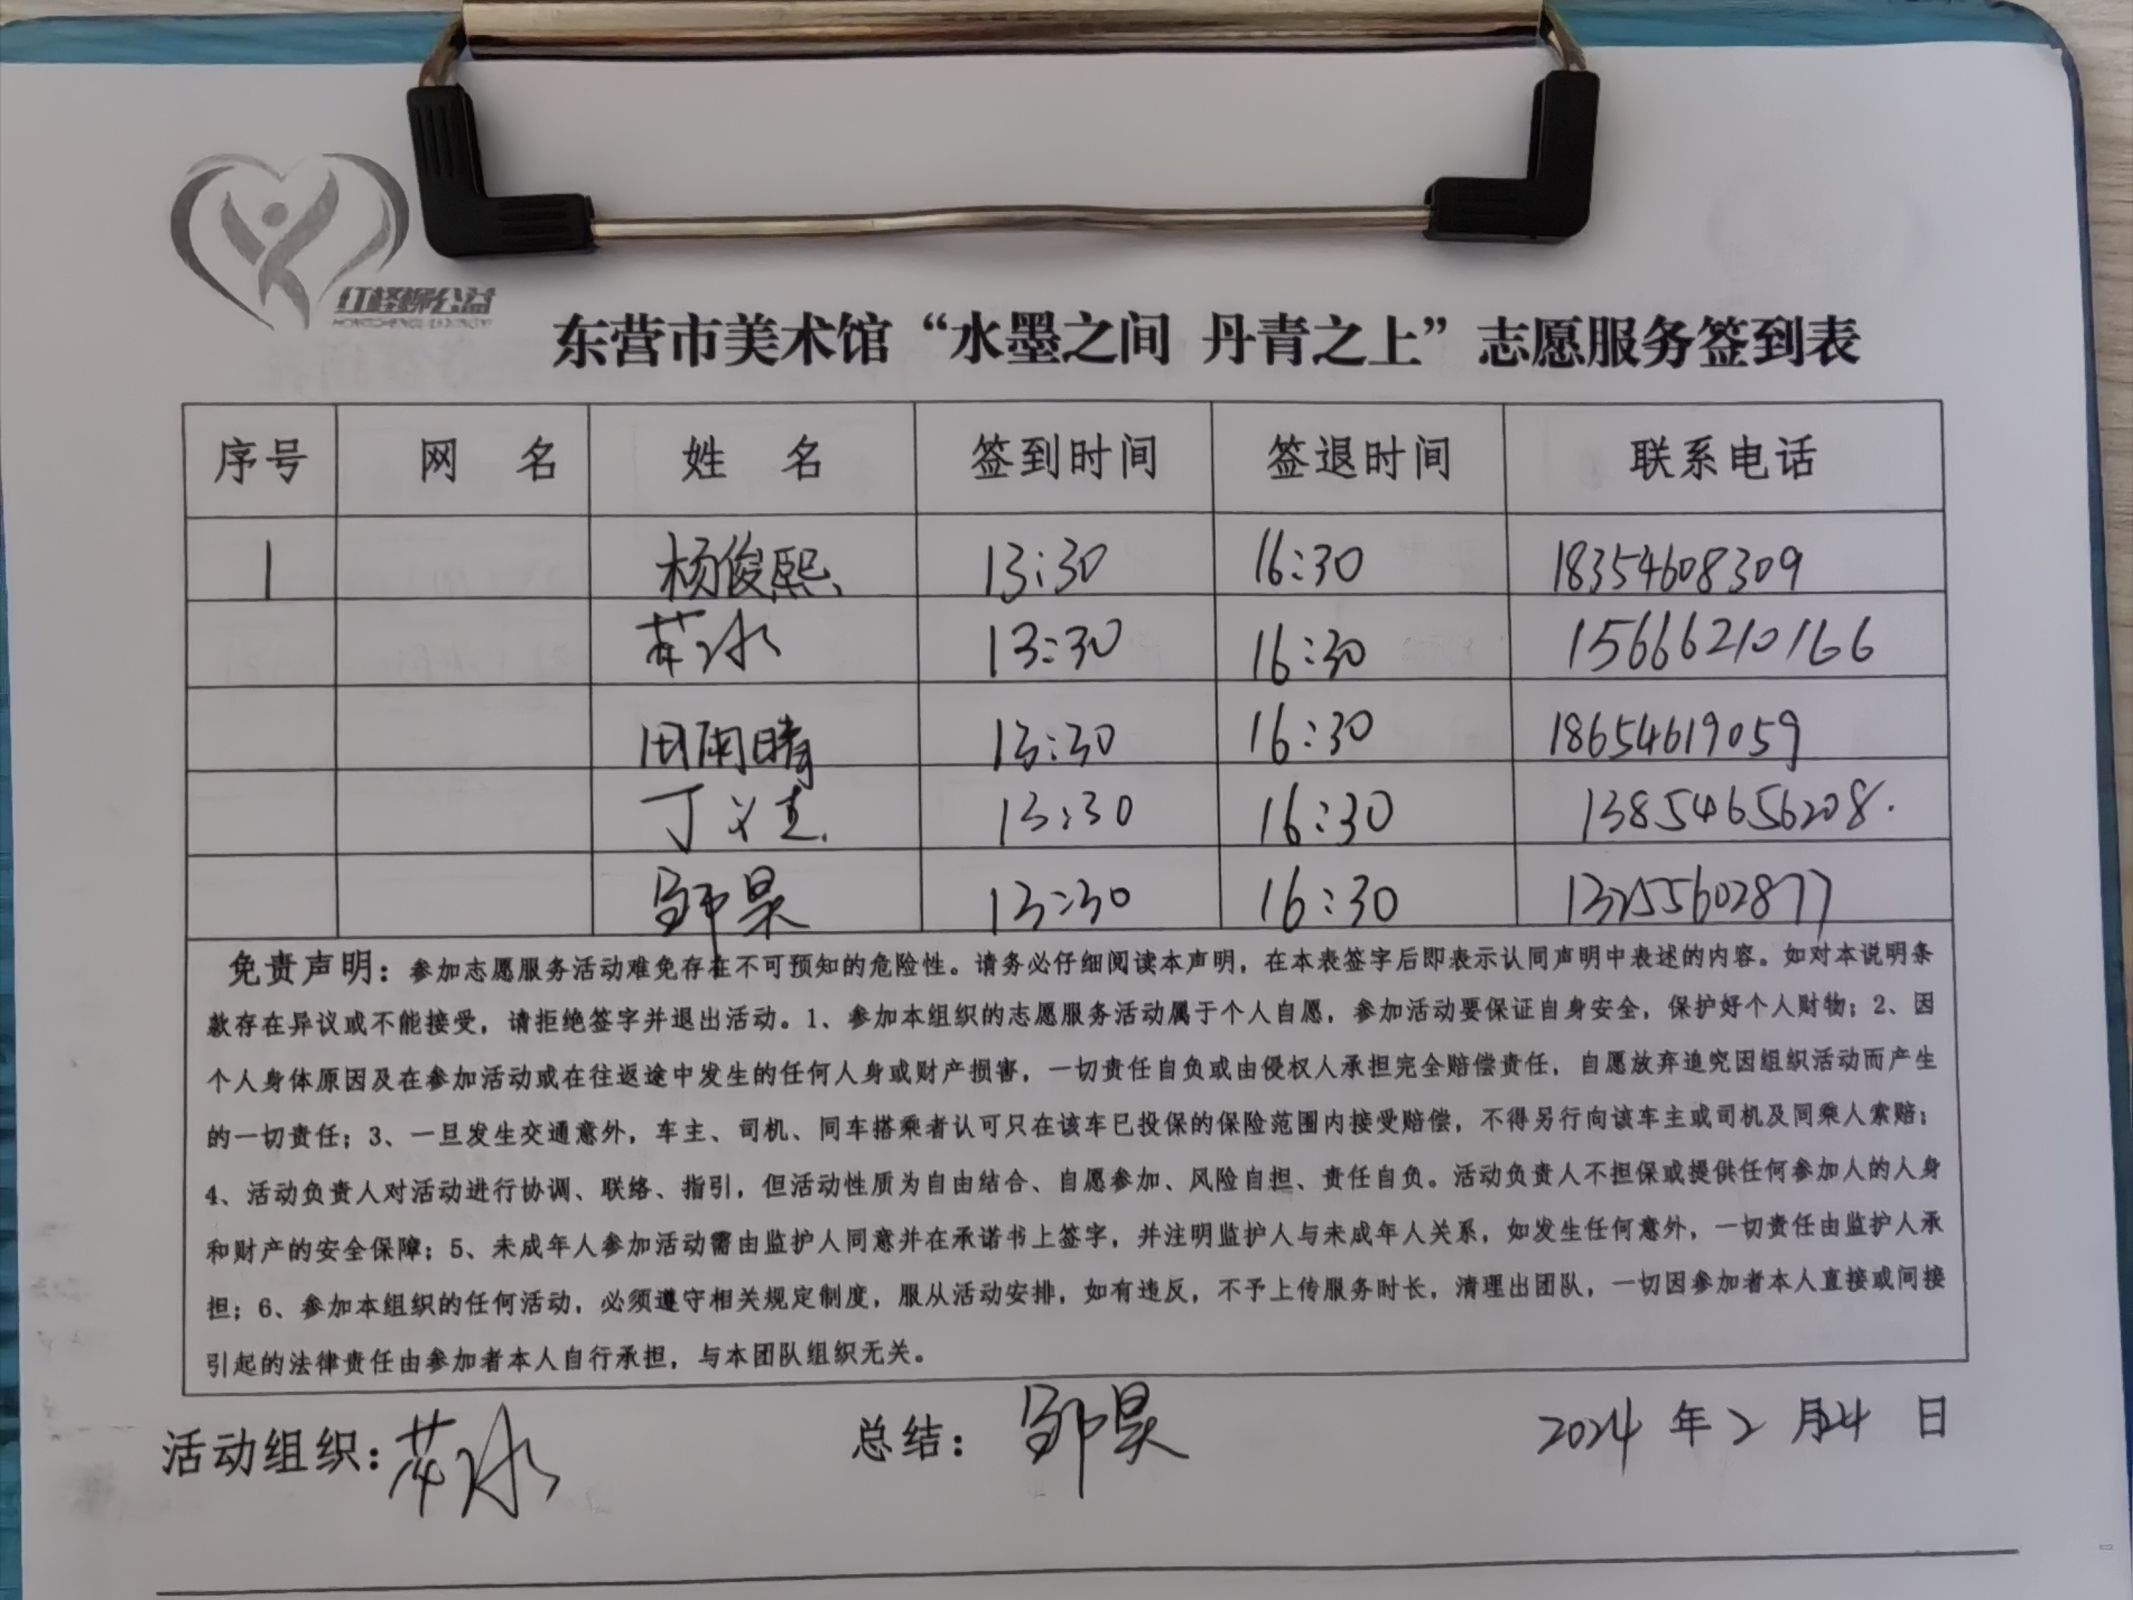 红柽柳公益
东营市美术馆“水墨之间 丹青之上”志愿服务签到表
序号 网 名 姓 名 签到时间 签退时间 联系电话
1 杨俊熙 13:30 16:30 18354608309
13:30 16:30 15666210166
田雨晴 13:30 16:30 18654619059
丁 13:30 16:30 13854656208.
邹昊 13:30 16:30 13255602877
免责声明：参加志愿服务活动难免存在不可预知的危险性。请务必仔细阅读本声明，在本表签字后即表示认同声明中表述的内容。如对本说明条
款存在异议或不能接受，请拒绝签字并退出活动。1、参加本组织的志愿服务活动属于个人自愿，参加活动要保证自身安全，保护好个人财物；2、因
个人身体原因及在参加活动或在往返途中发生的任何人身或财产损害，一切责任自负或由侵权人承担完全赔偿责任，自愿放弃追究因组织活动而产生
的一切责任；3、一旦发生交通意外，车主、司机、同车搭乘者认可只在该车已投保的保险范围内接受赔偿，不得另行向该车主或司机及同乘人索赔；
4、活动负责人对活动进行协调、联络、指引，但活动性质为自由结合、自愿参加、风险自担、责任自负。活动负责人不担保或提供任何参加人的人身
和财产的安全保障；5、未成年人参加活动需由监护人同意并在承诺书上签字，并注明监护人与未成年人关系，如发生任何意外，一切责任由监护人承
担；6、参加本组织的任何活动，必须遵守相关规定制度，服从活动安排，如有违反，不予上传服务时长，清理出团队，一切因参加者本人直接或间接
引起的法律责任由参加者本人自行承担，与本团队组织无关。
活动组织： 总结：邹昊 2024 年 2 月 24 日